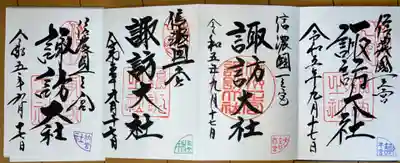 信濃國一之宮
諏訪大社
令和五年九月十七日
信濃國一之宮
諏訪大社
令和五年九月十七日
信濃國一宮
諏訪大社
令和五年九月十七日
信濃國一之宮
諏訪大社
令和五年九月十七日